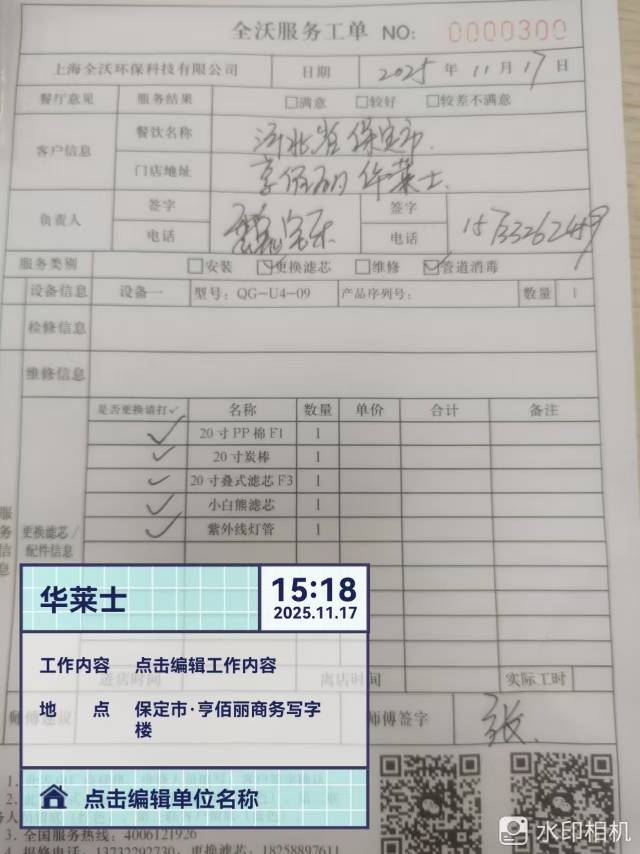 全沃服务工单 NO: 0000300
上海全沃环保科技有限公司 日期 2025 年 11 月 17 日
餐厅意见 服务结果 □满意 □较好 □较差不满意
客户信息 餐饮名称 河北省保定市.
门店地址 享佰丽华莱士.
负责人 签字 签字
电话 电话 15733262459
服务类别 □安装 ☑更换滤芯 □维修 ☑管道消毒
设备信息 设备一 型号: QG-U4-09 产品序列号: 数量 1
检修信息
维修信息
是否更换请打✓ 名称 数量 单价 合计 备注
✓ 20寸PP棉F1 1
✓ 20寸炭棒 1
✓ 20寸叠式滤芯F3 1
✓ 小白熊滤芯 1
✓ 紫外线灯管 1
服务信息
更换滤芯/
配件信息
华莱士 15:18
2025.11.17
工作内容 点击编辑工作内容
地 点 保定市·亨佰丽商务写字
楼
点击编辑单位名称
进店时间 离店时间 实际工时
师傅建议 师傅签字 张
3. 全国服务热线: 4006121926
4. 报修电话: 13732292730、更换滤芯: 18258897611
水印相机